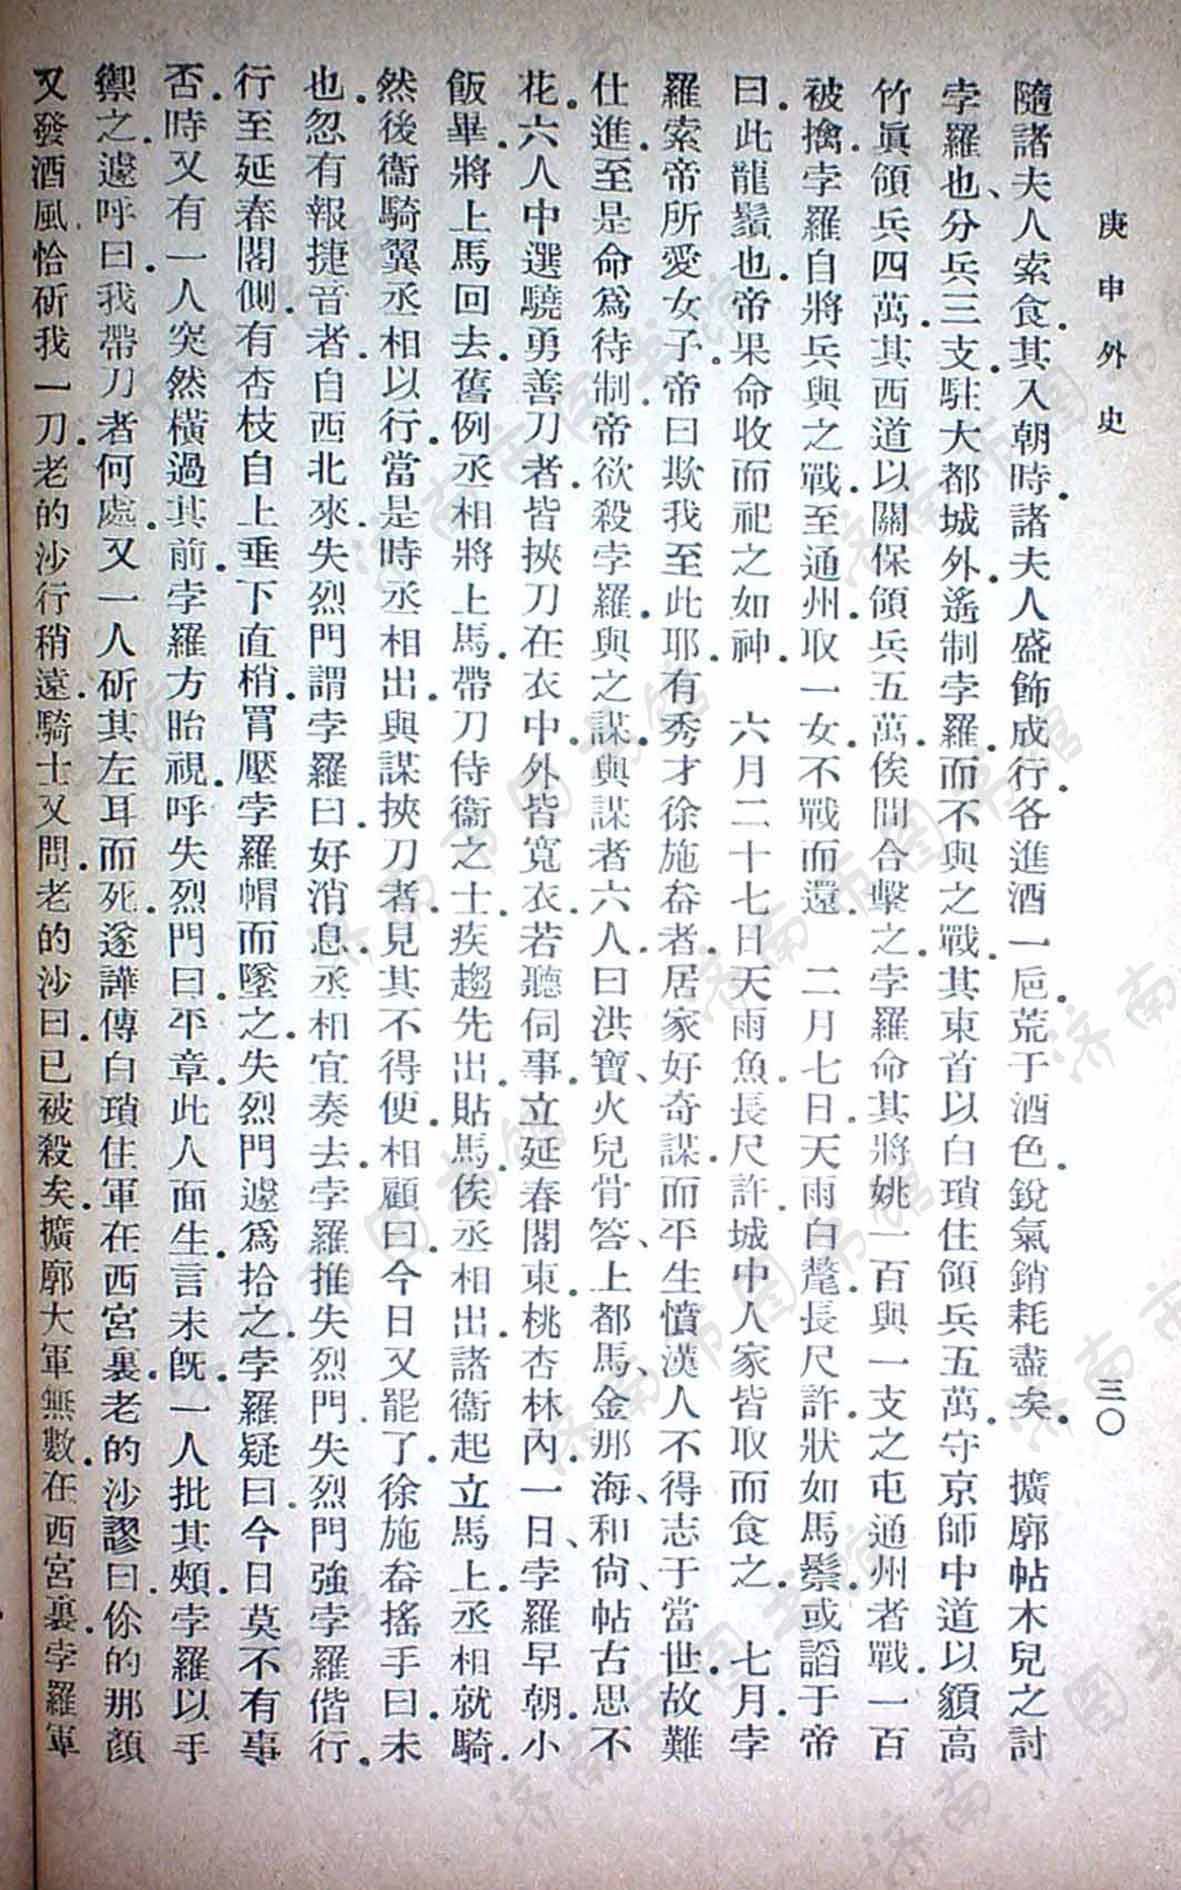 庚申外史
三〇
隨諸夫人索食其入朝時諸夫人盛飾成行各進酒一巵荒于酒色銳氣銷耗盡矣　擴廓帖木兒之討
孛羅也分兵三支駐大都城外遙制孛羅而不與之戰其東首以白瑣住領兵五萬守京師中道以貊高
竹眞領兵四萬其西道以關保領兵五萬俟間合擊之孛羅命其將姚一百與一支之屯通州者戰一百
被擒孛羅自將兵與之戰至通州取一女不戰而還　二月七日天雨白氂長尺許狀如馬鬃或謟于帝
曰此龍鬚也帝果命收而祀之如神　六月二十七日天雨魚長尺許城中人家皆取而食之　七月孛
羅索帝所愛女子帝曰欺我至此耶有秀才徐施畚者居家好奇謀而平生憤漢人不得志于當世故難
仕進至是命爲待制帝欲殺孛羅與之謀與謀者六人曰洪寶、火兒骨答、上都馬、金那海、和尙、帖古思不
花六人中選驍勇善刀者皆挾刀在衣中外皆寬衣若聽伺事立延春閣東桃杏林內一日、孛羅早朝小
飯畢將上馬回去舊例丞相將上馬帶刀侍衞之士疾趨先出貼馬俟丞相出諸衞起立馬上丞相就騎
然後衞騎翼丞相以行當是時丞相出與謀挾刀者見其不得便相顧曰今日又罷了徐施畚搖手曰未
也忽有報捷音者自西北來失烈門謂孛羅曰好消息丞相宜奏去孛羅推失烈門失烈門強孛羅偕行
行至延春閣側有杏枝自上垂下直梢罥壓孛羅帽而墜之失烈門遽爲拾之孛羅疑曰今日莫不有事
否時又有一人突然橫過其前孛羅方眙視呼失烈門曰平章此人面生言未旣一人批其頰孛羅以手
禦之遽呼曰我帶刀者何處又一人斫其左耳而死遂譁傳白瑣住軍在西宮裏老的沙謬曰伱的那顏
又發酒風恰斫我一刀老的沙行稍遠騎士又問老的沙曰已被殺矣擴廓大軍無數在西宮裏孛羅軍